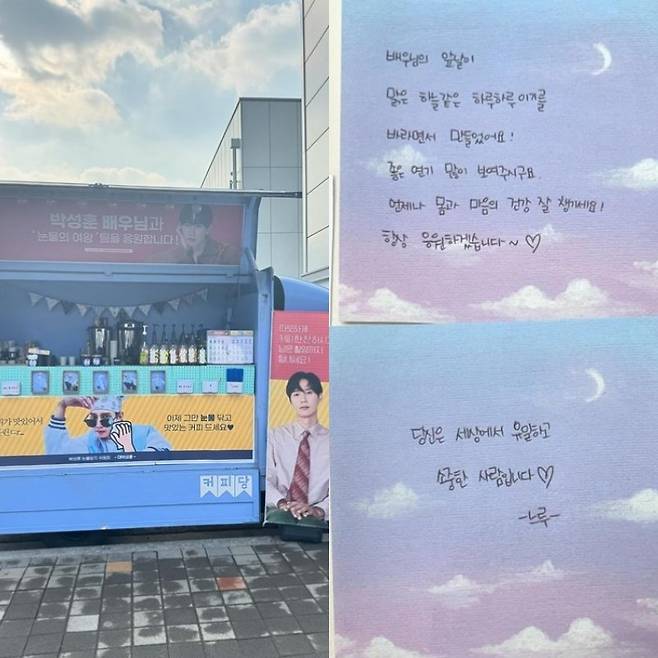 박성훈 배우님과
'눈물의 여왕' 팀을 응원합니다!
이제 그만 눈물 닦고
맛있는 커피 드세요♥
커피당
배우님의 앞날이
맑은 하늘같은 하루하루이기를
바라면서 만들었어요!
좋은 연기 많이 보여주시구요.
언제나 몸과 마음의 건강 잘 챙기세요!
항상 응원하겠습니다~ ♡
당신은 세상에서 유일하고
소중한 사람입니다♡
-느루-